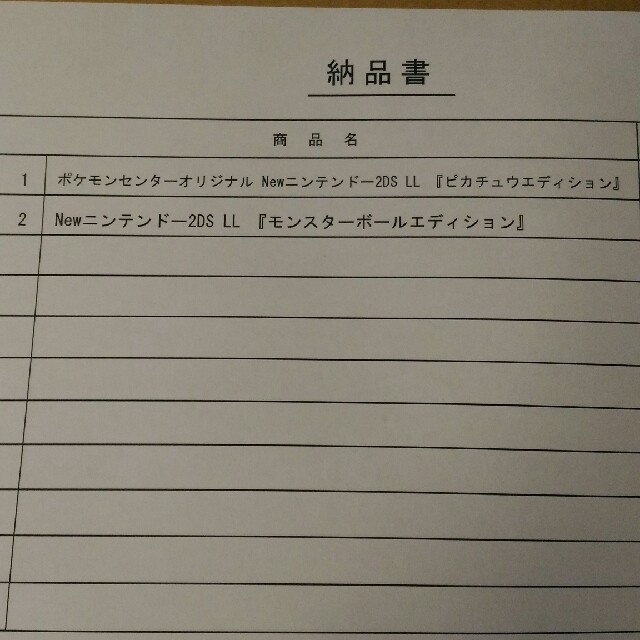 納品書
商品名
1 ポケモンセンターオリジナル Newニンテンドー2DS LL 『ピカチュウエディション』
2 Newニンテンドー2DS LL 『モンスターボールエディション』